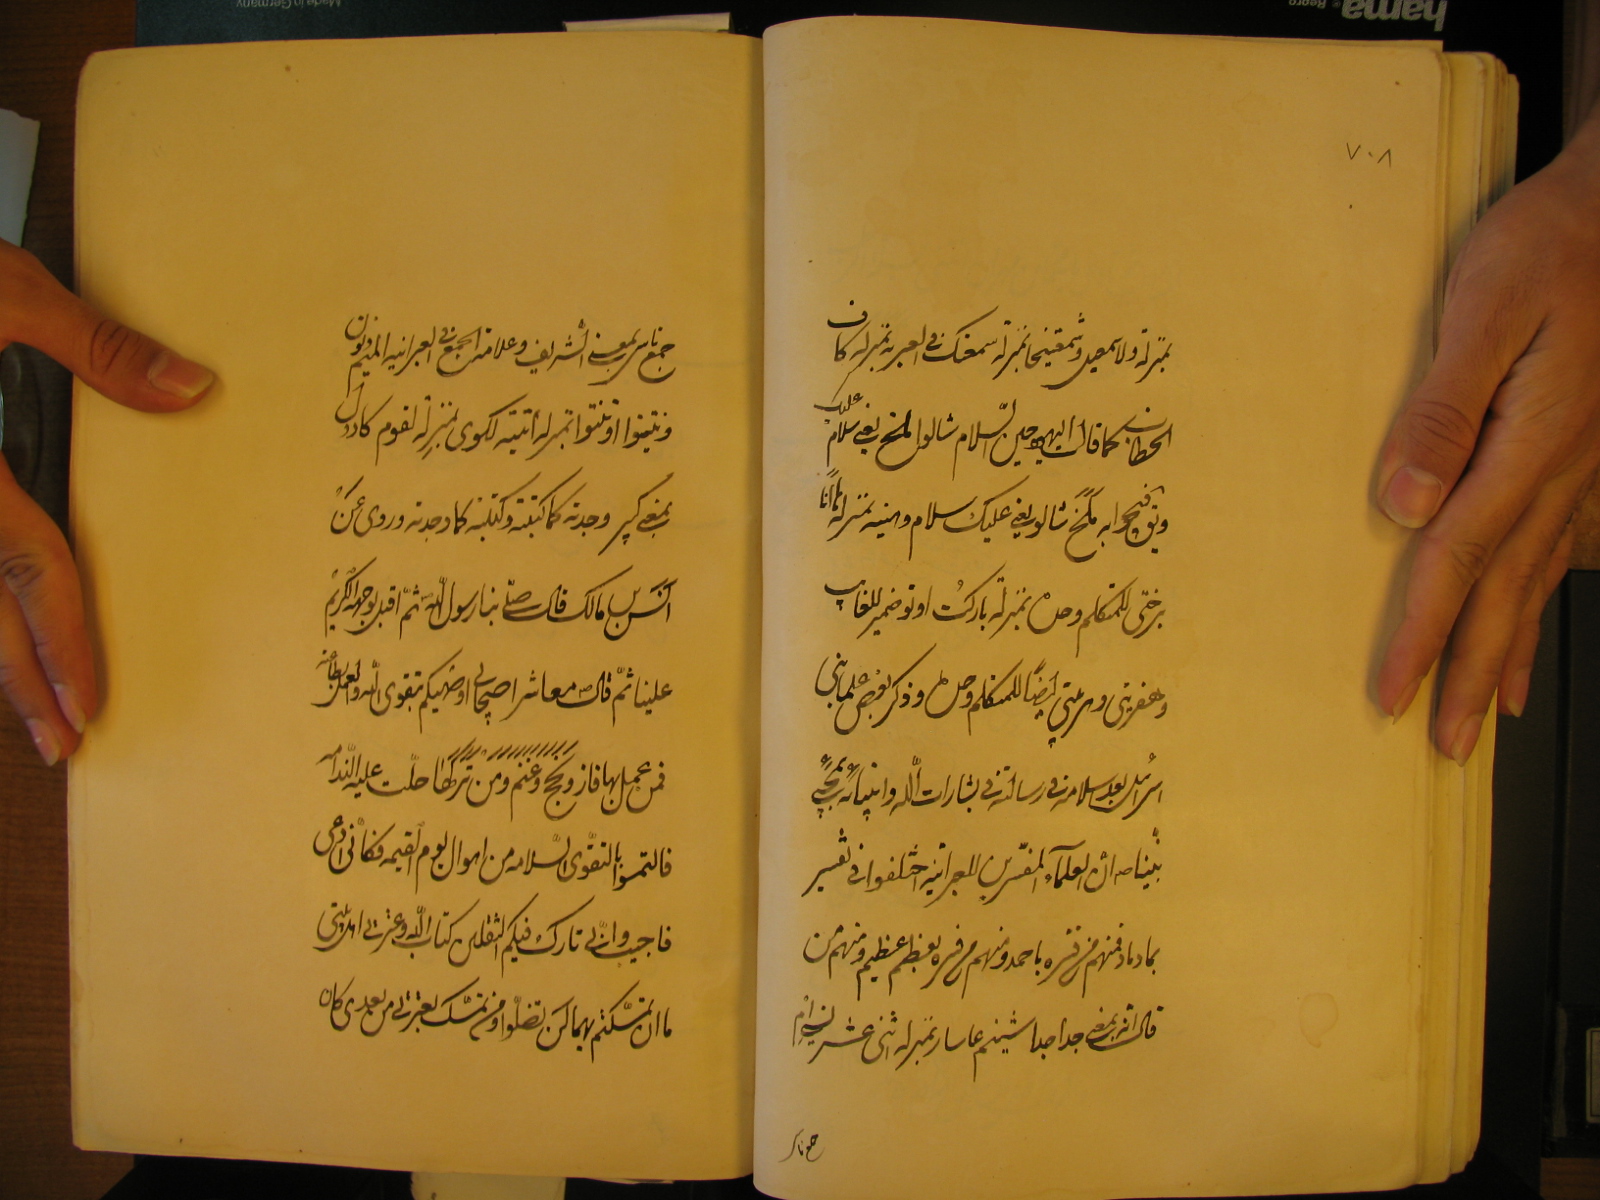 ٧٠٨
بمنزلة ولاسمعيل وشمعتيخا بمنزلة سمعتك في العربيه بمنزله كاف
الخطاب كما قالت اليهود حين السلام شالوم لخ يعني سلام عليك
وتوقيخوا به ملخ شالوم يعني عليك سلام وهنيه بمنزلة ها انا
برختي للمتكلم وحده بمنزلة باركت اوتو ضمير للغايب
وهفريتي وهربيتي ايضا للمتكلم وحده وذكر بعض علما بني
اسرائيل بعد سلامه في رسالته في بشارات الله وانبيائه بمجيء
نبينا ص ان العلماء المفسرين للعبرانيه اختلفوا في تفسير
بمادماد فمنهم من فسره باحمد ومنهم من فسره بعظم عظيم ومنهم من
قال انه بمعنى جدا جدا شينم عاسار بمنزله اثني عشر نسيئيم
جمع ناس
جمع ناسى بمعنى الشريف وعلامة الجمع في العبرانيه الميم ونون
ونتيتوا او نتتيوا بمنزله اتيته لكوى بمنزلة لقوم كادول
بمعنى كبير وجدته كما كتبته وكتبته كما وجدته وروى عن
انس بن مالك قال صلى بنا رسول الله ثم اقبل بوجهه الكريم
علينا ثم قال معاشر اصحابي اوصيكم بتقوى الله والعمل بطاعته
فمن عمل بها فاز ونجح وغنم ومن تركها حلت عليه الندامه
فالتمسوا بالتقوى السلامه من اهوال يوم القيمه فكانى ادعى
فاجيب وانى تارك فيكم الثقلين كتاب الله وعترتي اهل بيتي
ما ان تمسكتم بهما لن تضلوا ومن تمسك بعترتي من بعدى كان
hama
Repro
Made in Germany